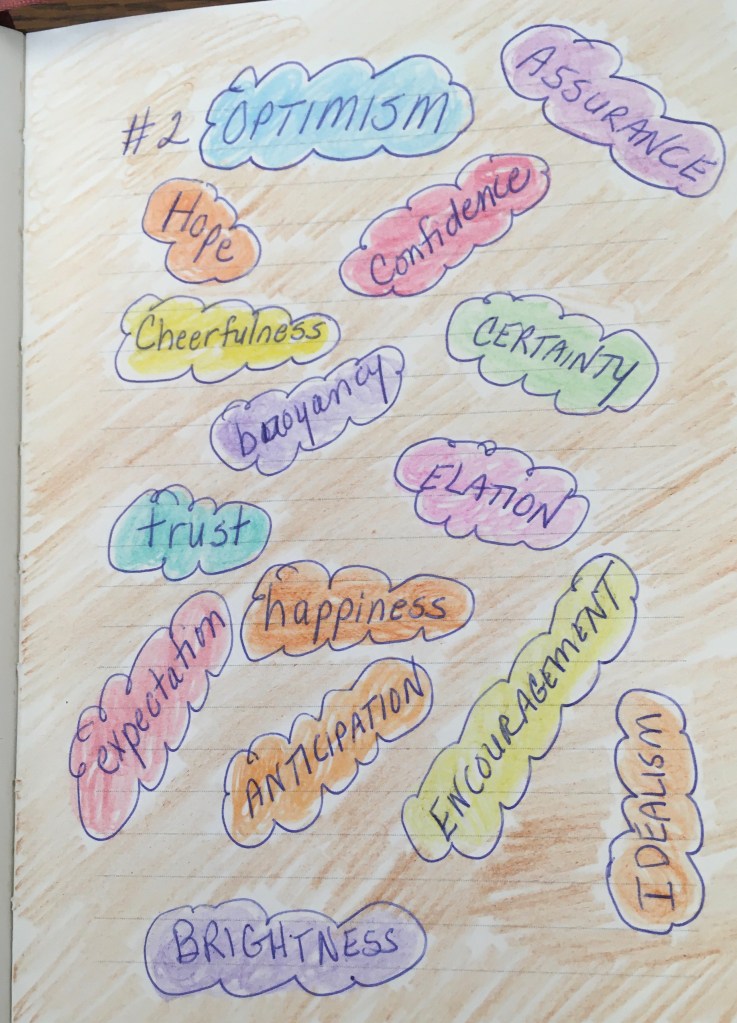 #2 OPTIMISM
ASSURANCE
Hope
Confidence
Cheerfulness
CERTAINTY
buoyancy
ELATION
trust
happiness
expectation
ANTICIPATION
ENCOURAGEMENT
IDEALISM
BRIGHTNESS